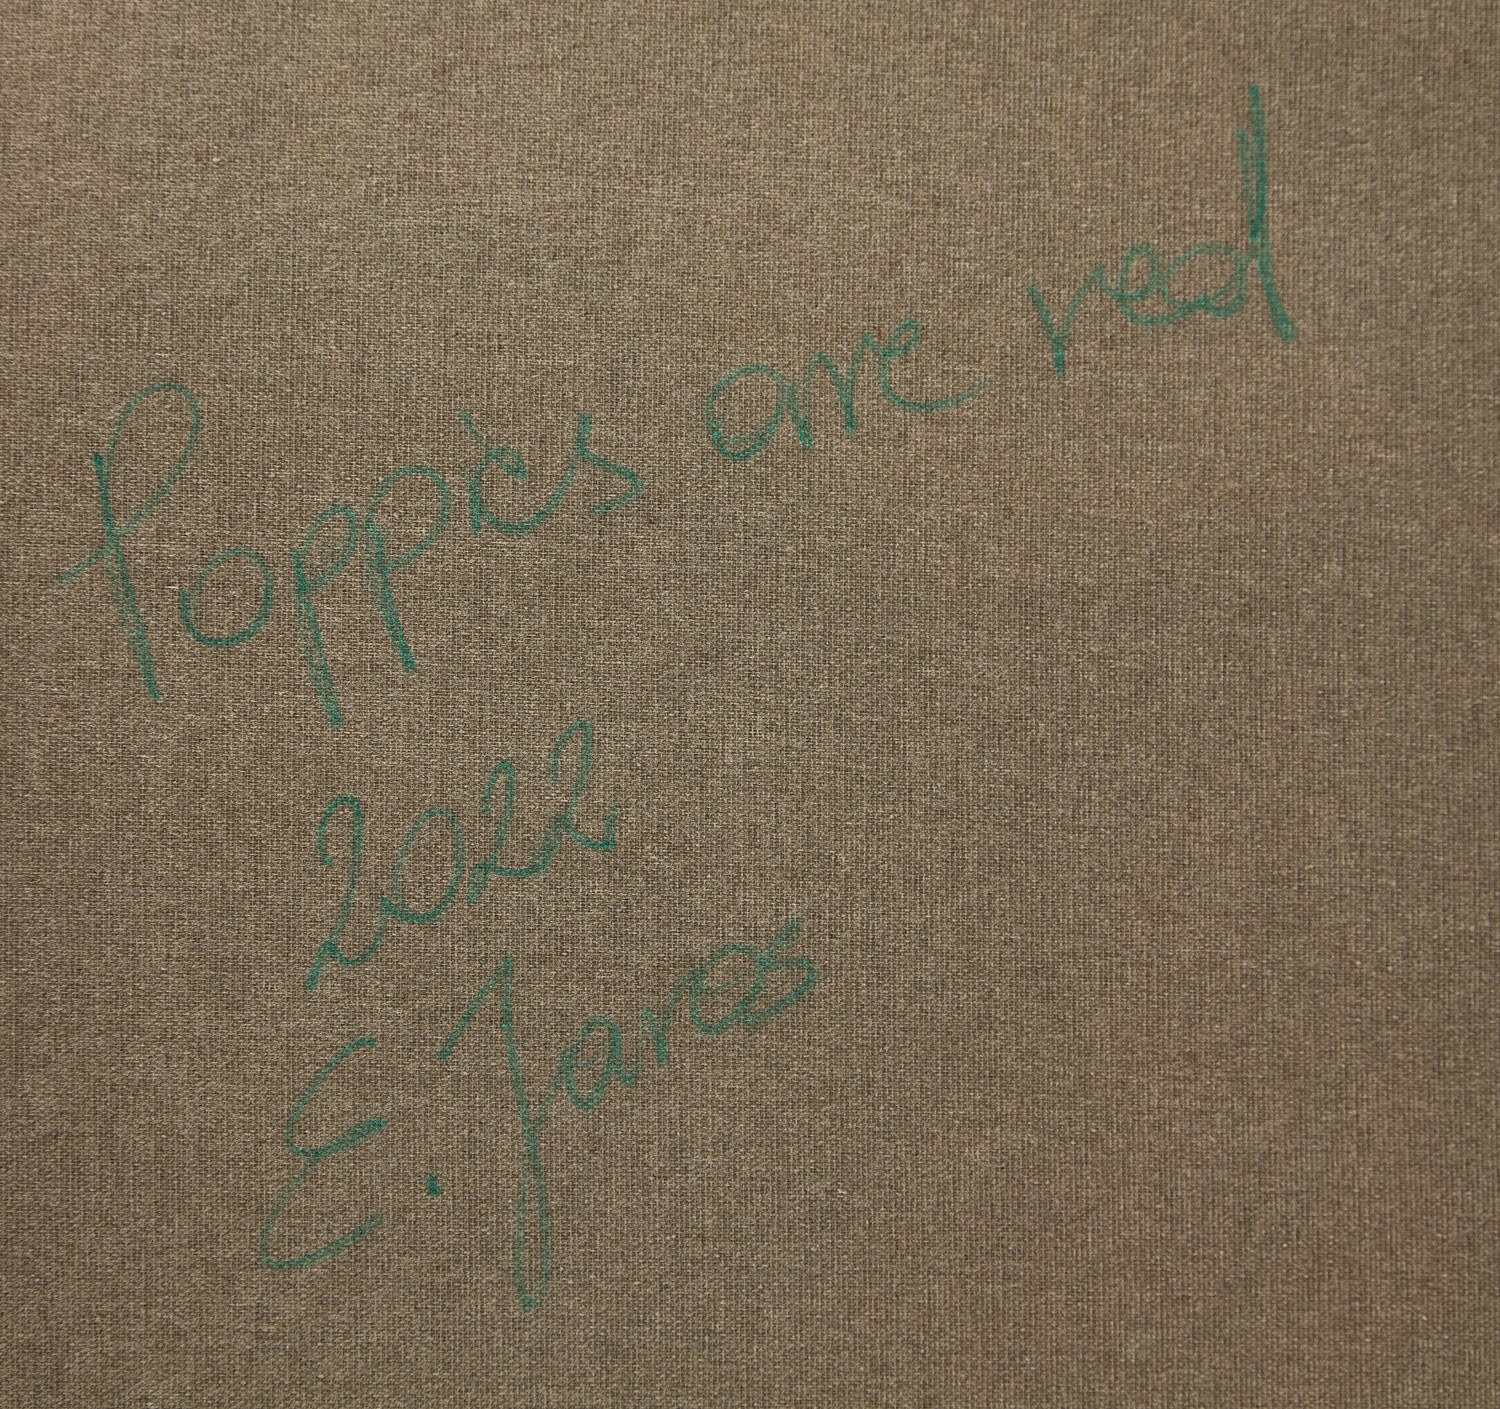 Poppies are red
2022
E. Jaros